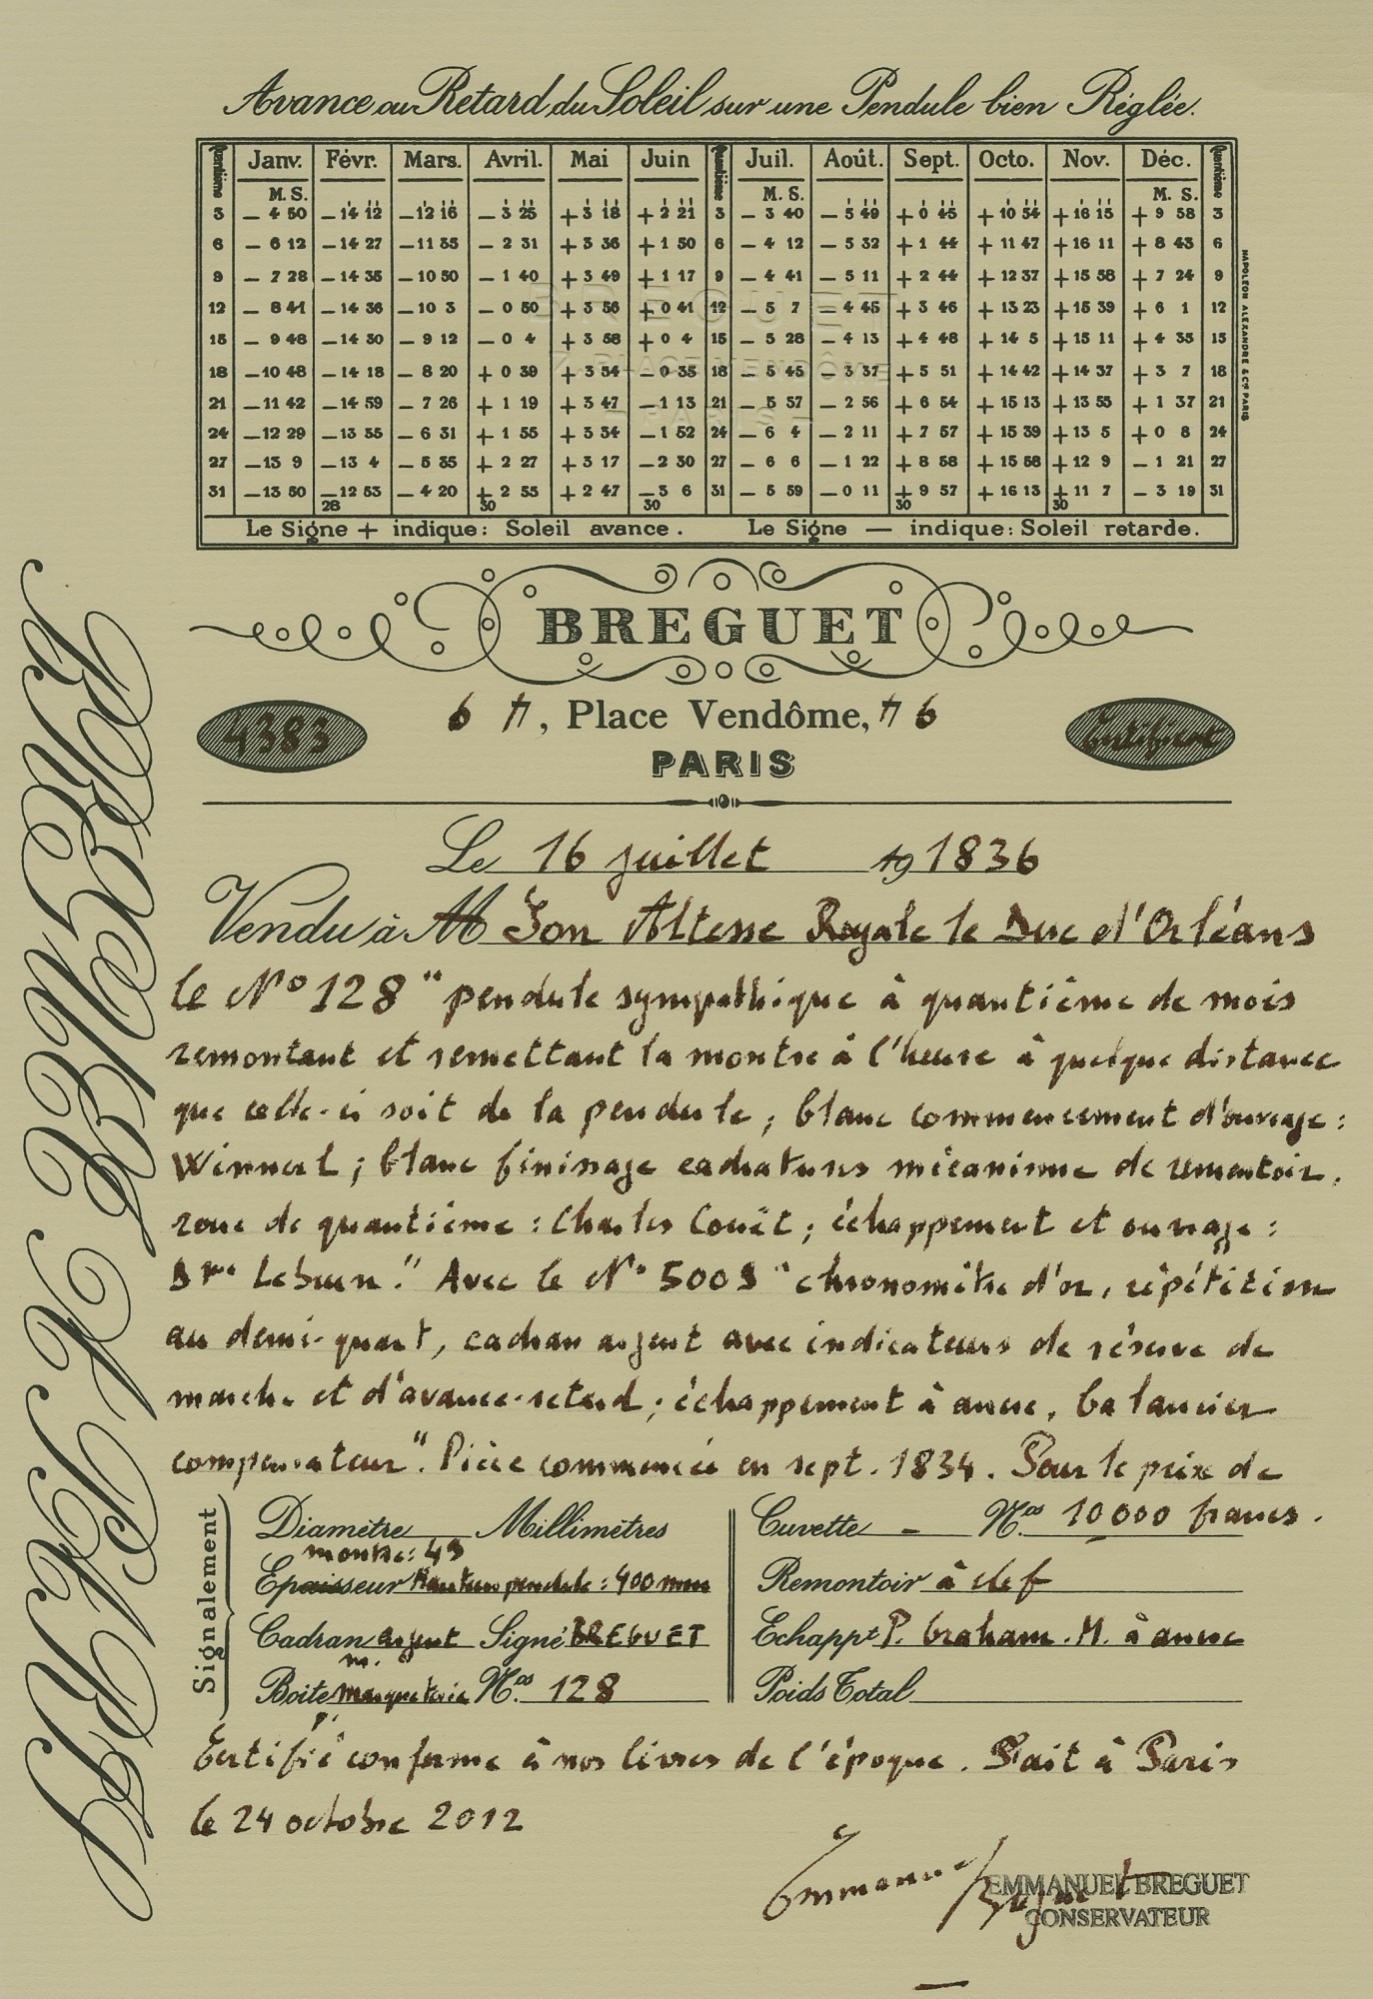 Avance ou Retard du Soleil sur une Pendule bien Réglée.
Quantième Janv. Févr. Mars. Avril. Mai Juin Quantième Juil. Août. Sept. Octo. Nov. Déc. Quantième
M. S. M. S. M. S.
3 — 4 50 — 14 12 — 12 16 — 3 25 + 3 18 + 2 21 3 — 3 40 — 5 49 + 0 45 + 10 54 + 16 15 + 9 58 3
6 — 6 12 — 14 27 — 11 35 — 2 31 + 3 36 + 1 50 6 — 4 12 — 5 32 + 1 44 + 11 47 + 16 11 + 8 43 6
9 — 7 28 — 14 35 — 10 50 — 1 40 + 3 49 + 1 17 9 — 4 41 — 5 11 + 2 44 + 12 37 + 15 58 + 7 24 9
12 — 8 41 — 14 36 — 10 3 — 0 50 + 3 56 + 0 41 12 — 5 7 — 4 45 + 3 46 + 13 23 + 15 39 + 6 1 12
15 — 9 48 — 14 30 — 9 12 — 0 4 + 3 58 + 0 4 15 — 5 28 — 4 13 + 4 48 + 14 5 + 15 11 + 4 35 15
18 — 10 48 — 14 18 — 8 20 + 0 39 + 3 54 — 0 35 18 — 5 45 — 3 37 + 5 51 + 14 42 + 14 37 + 3 7 18
21 — 11 42 — 14 59 — 7 26 + 1 19 + 3 47 — 1 13 21 — 5 57 — 2 56 + 6 54 + 15 13 + 13 55 + 1 37 21
24 — 12 29 — 13 35 — 6 31 + 1 55 + 3 34 — 1 52 24 — 6 4 — 2 11 + 7 57 + 15 39 + 13 5 + 0 8 24
27 — 13 9 — 13 4 — 5 35 + 2 27 + 3 17 — 2 30 27 — 6 6 — 1 22 + 8 58 + 15 58 + 12 9 — 1 21 27
31 — 13 50 — 12 53 — 4 20 + 2 55 + 2 47 — 3 6 31 — 5 59 — 0 11 + 9 57 + 16 13 + 11 7 — 3 19 31
28 30 30 30 30
Le Signe + indique: Soleil avance. Le Signe — indique: Soleil retarde.
NAPOLÉON ALEXANDRE & Cie PARIS
BREGUET
7, PLACE VENDÔME
PARIS
BREGUET
6, Place Vendôme, 6
PARIS
4383
Certificat
Le 16 juillet 19 1836
Vendu à M Son Altesse Royale le Duc d'Orléans
le N° 128 "pendule sympathique à quantième de mois
remontant et remettant la montre à l'heure à quelque distance
que celle-ci soit de la pendule ; blanc commencement d'ouvrage :
Winnerl ; blanc finissage cadratures mécanisme de remontoir,
roue de quantième : Charles Couët ; échappement et ouvrage :
Lebrun." Avec le N° 5009 "chronomètre d'or, répétition
au demi-quart, cadran argent avec indicateurs de réserve de
marche et d'avance-retard ; échappement à ancre, balancier
compensateur". Pièce commencée en sept. 1834. Pour le prix de
10 000 francs.
Signalement
Diamètre Millimètres
montre: 49
Epaisseur Hauteur pendule : 400 mm
Cadran argent Signé BREGUET
m.
Boite marqueterie Nos 128
p.
Cuvette - Nos
Remontoir à clef
Echappt P. Graham. M. à ancre
Poids Total
Certifié conforme à nos livres de l'époque. Fait à Paris
le 24 octobre 2012
Emmanuel Breguet
EMMANUEL BREGUET
CONSERVATEUR
BREGUET PARIS